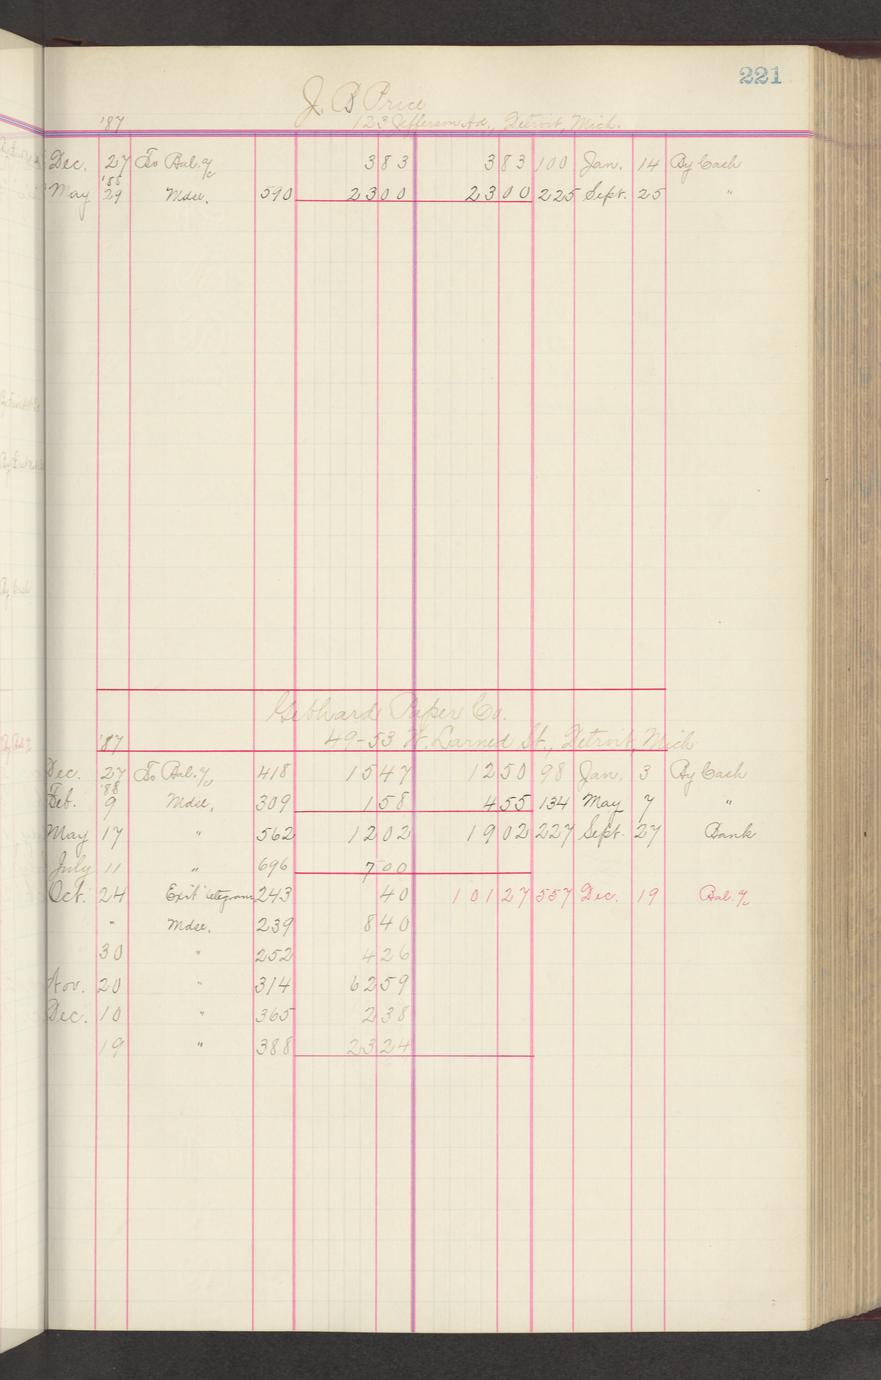 221
J. B Price
'87 123 Jefferson Av., Detroit, Mich.
Dec. 27 To Bal. a/c 383 383 100 Jan. 14 By Cash
'88
May 29 Mdse. 590 2300 2300 225 Sept. 25 "
Gebhard Paper Co.
'87 49-53 W. Larned St., Detroit, Mich
Dec. 27 To Bal. a/c 418 1547 1250 98 Jan. 3 By Cash
'88
Feb. 9 Mdse. 309 158 455 134 May 7 "
May 17 " 562 1202 1902 227 Sept. 27 Bank
July 11 " 696 700
Oct. 24 telegram 243 40 10127 557 Dec. 19 Bal. a/c
" Mdse. 239 840
30 " 252 426
Nov. 20 " 314 6259
Dec. 10 " 365 238
19 " 388 2324